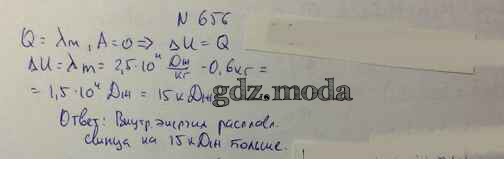 N 656
Q = λm, A=0 => ΔU = Q
ΔU = λm = 2,5·10⁴ Дж/кг · 0,6кг =
= 1,5·10⁴ Дж = 15 кДж
gdz.moda
Ответ: Внутр. энергия расплавл.
свинца на 15 кДж больше.